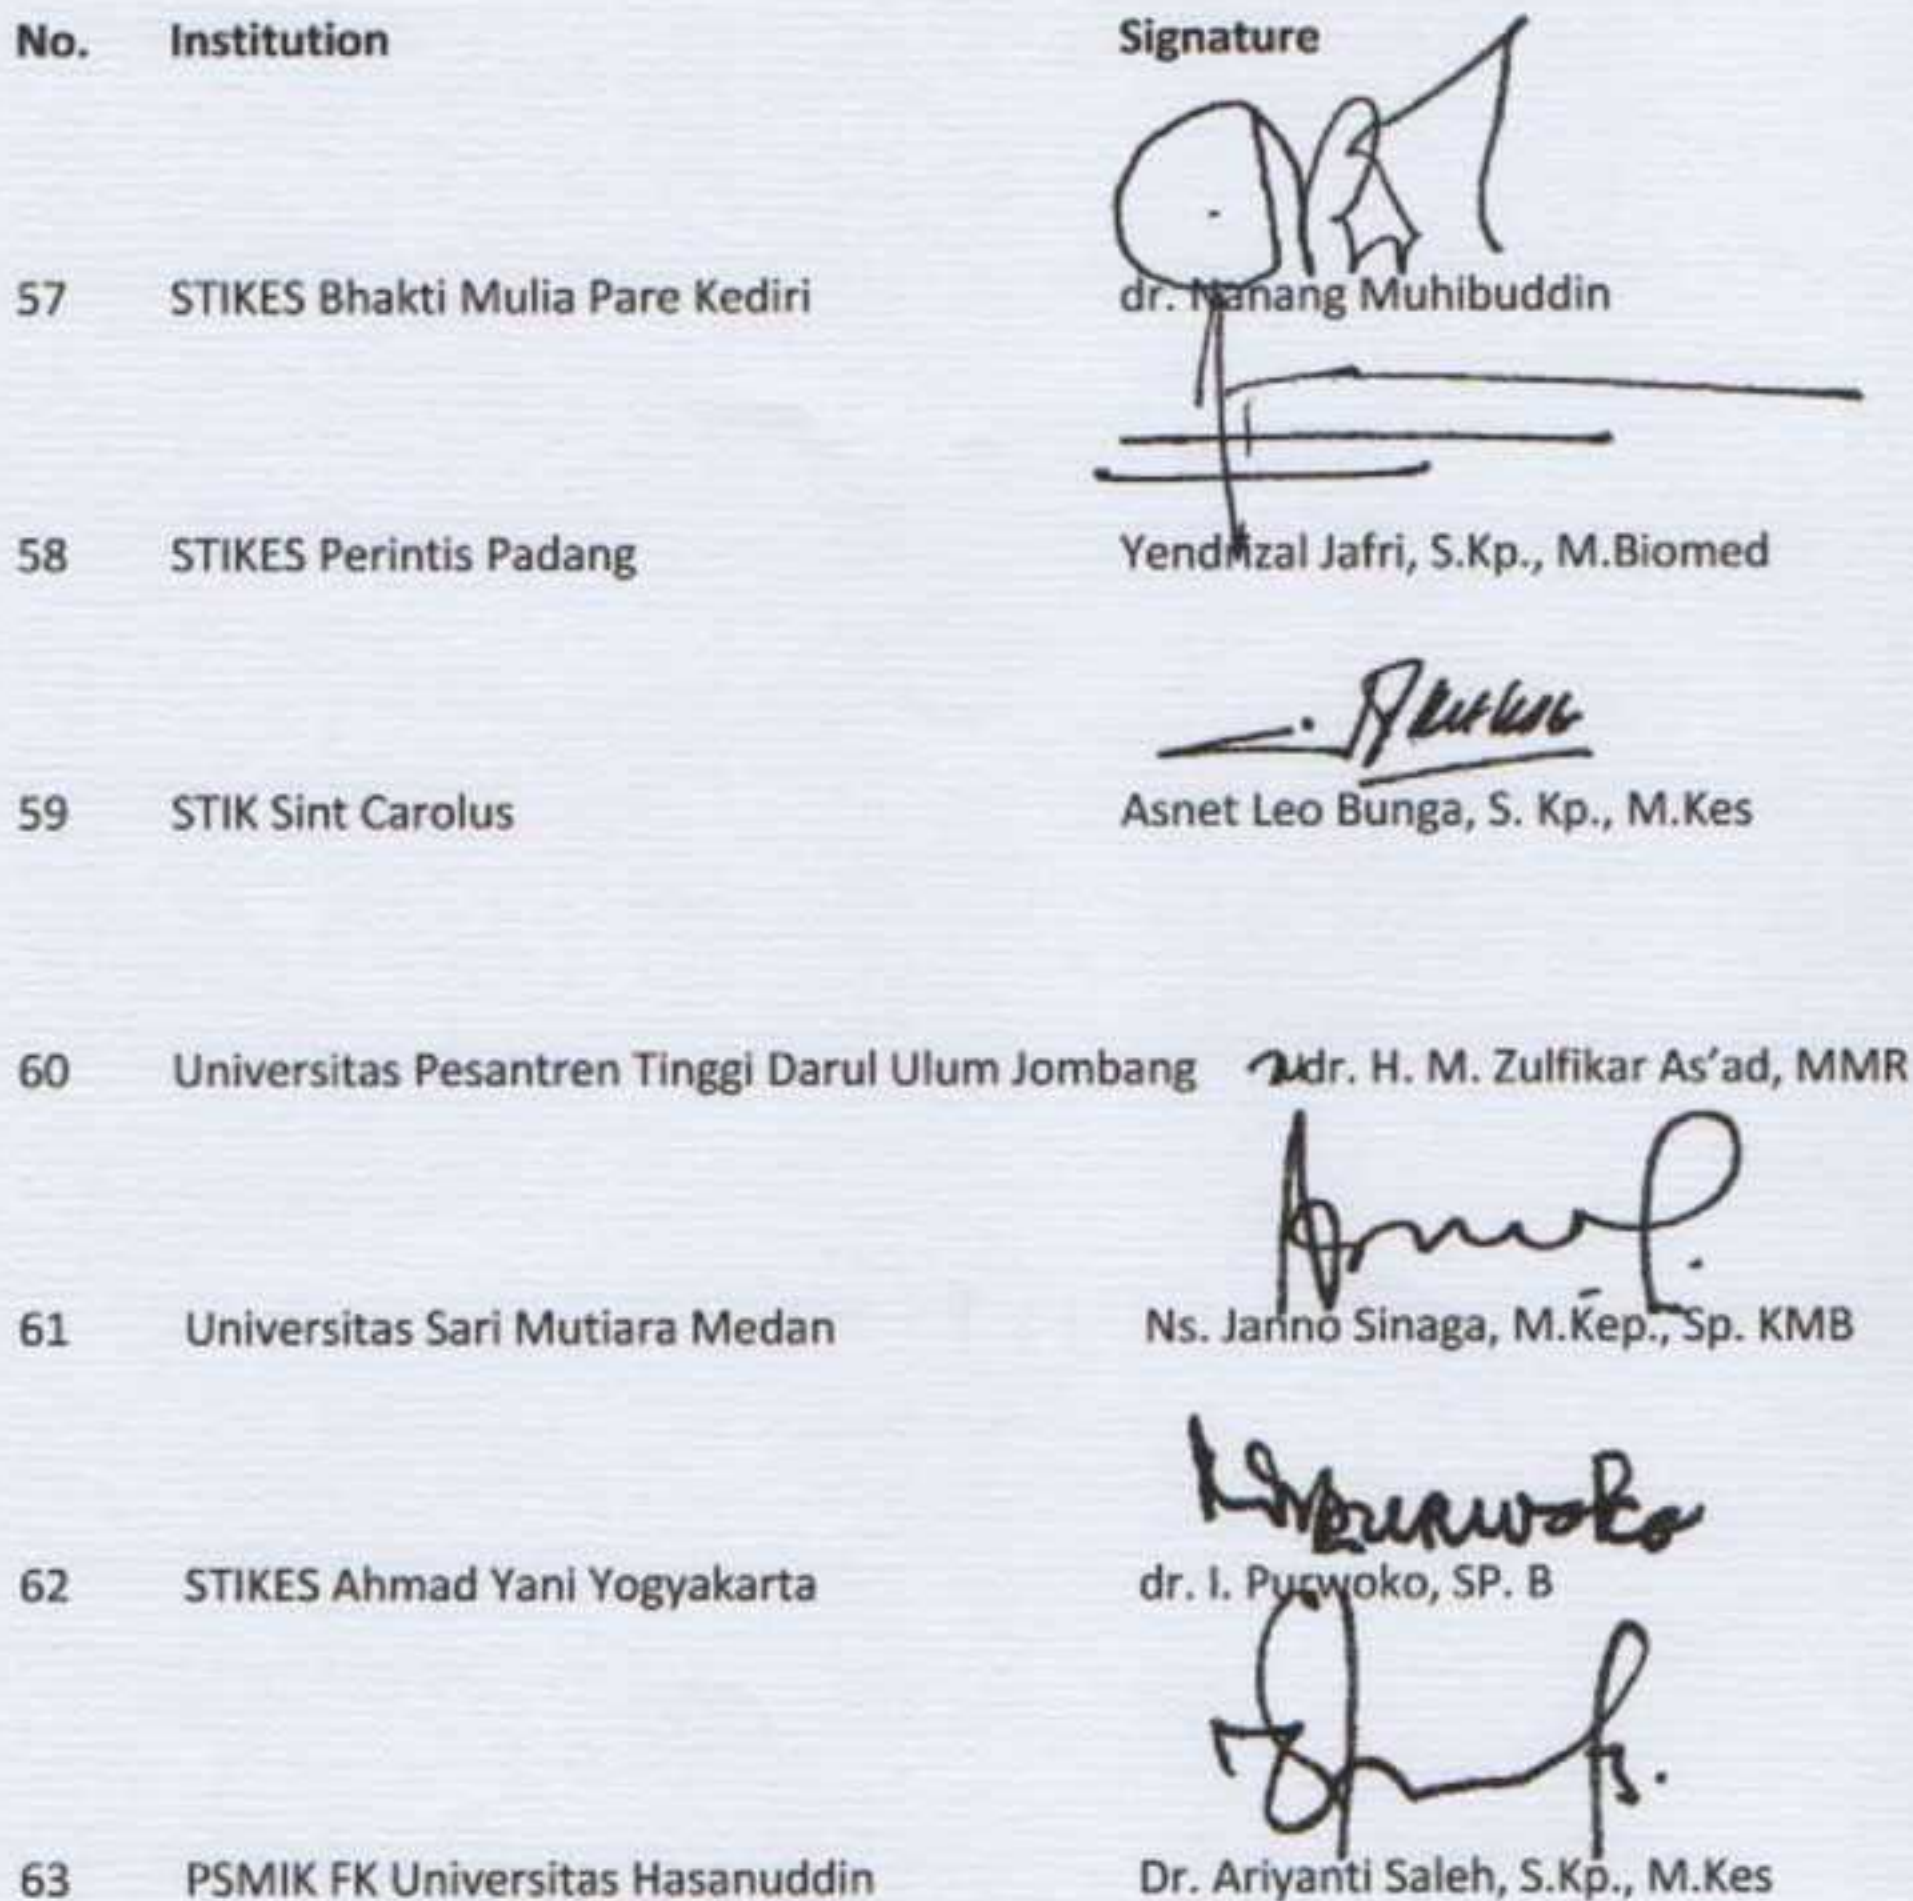 No. Institution Signature
57 STIKES Bhakti Mulia Pare Kediri dr. Nanang Muhibuddin
58 STIKES Perintis Padang Yendrizal Jafri, S.Kp., M.Biomed
59 STIK Sint Carolus Asnet Leo Bunga, S. Kp., M.Kes
60 Universitas Pesantren Tinggi Darul Ulum Jombang dr. H. M. Zulfikar As'ad, MMR
61 Universitas Sari Mutiara Medan Ns. Janno Sinaga, M.Kep., Sp. KMB
Purwoko
62 STIKES Ahmad Yani Yogyakarta dr. I. Purwoko, SP. B
63 PSMIK FK Universitas Hasanuddin Dr. Ariyanti Saleh, S.Kp., M.Kes